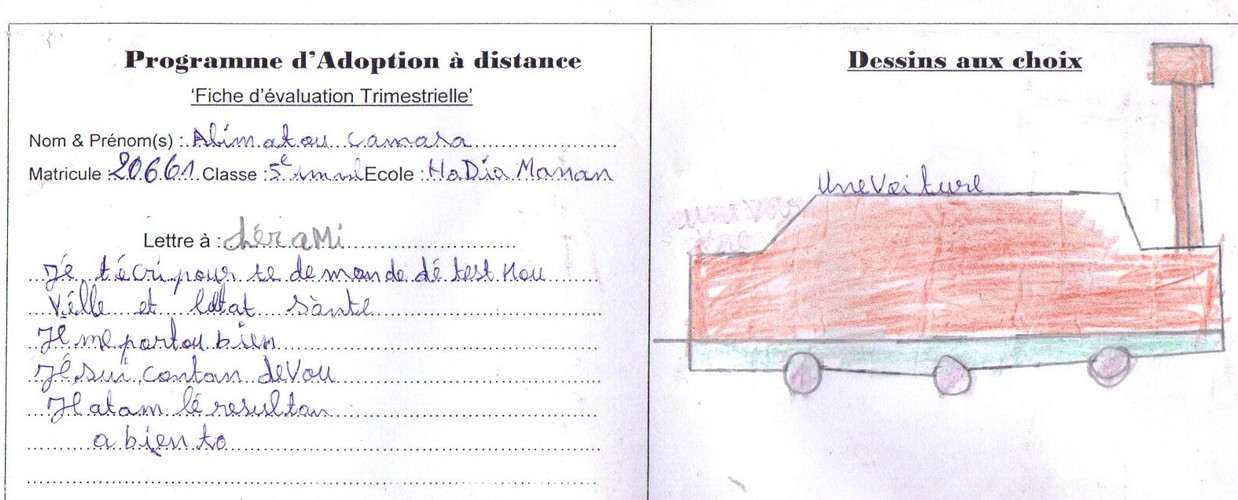 Programme d'Adoption à distance
'Fiche d'évaluation Trimestrielle'
Nom & Prénom(s) : Alimatou Camara
Matricule : 20661 Classe : 5e Ecole : HaDia Manan
Lettre à : chèr aMi
Jé t'écri pour te de mande dé test Nou
Vélle et létat sànte
Je me portou bien
Jé sui contan de Vou
J atam lé resultan
a bien to
Dessins aux choix
Une Voiture